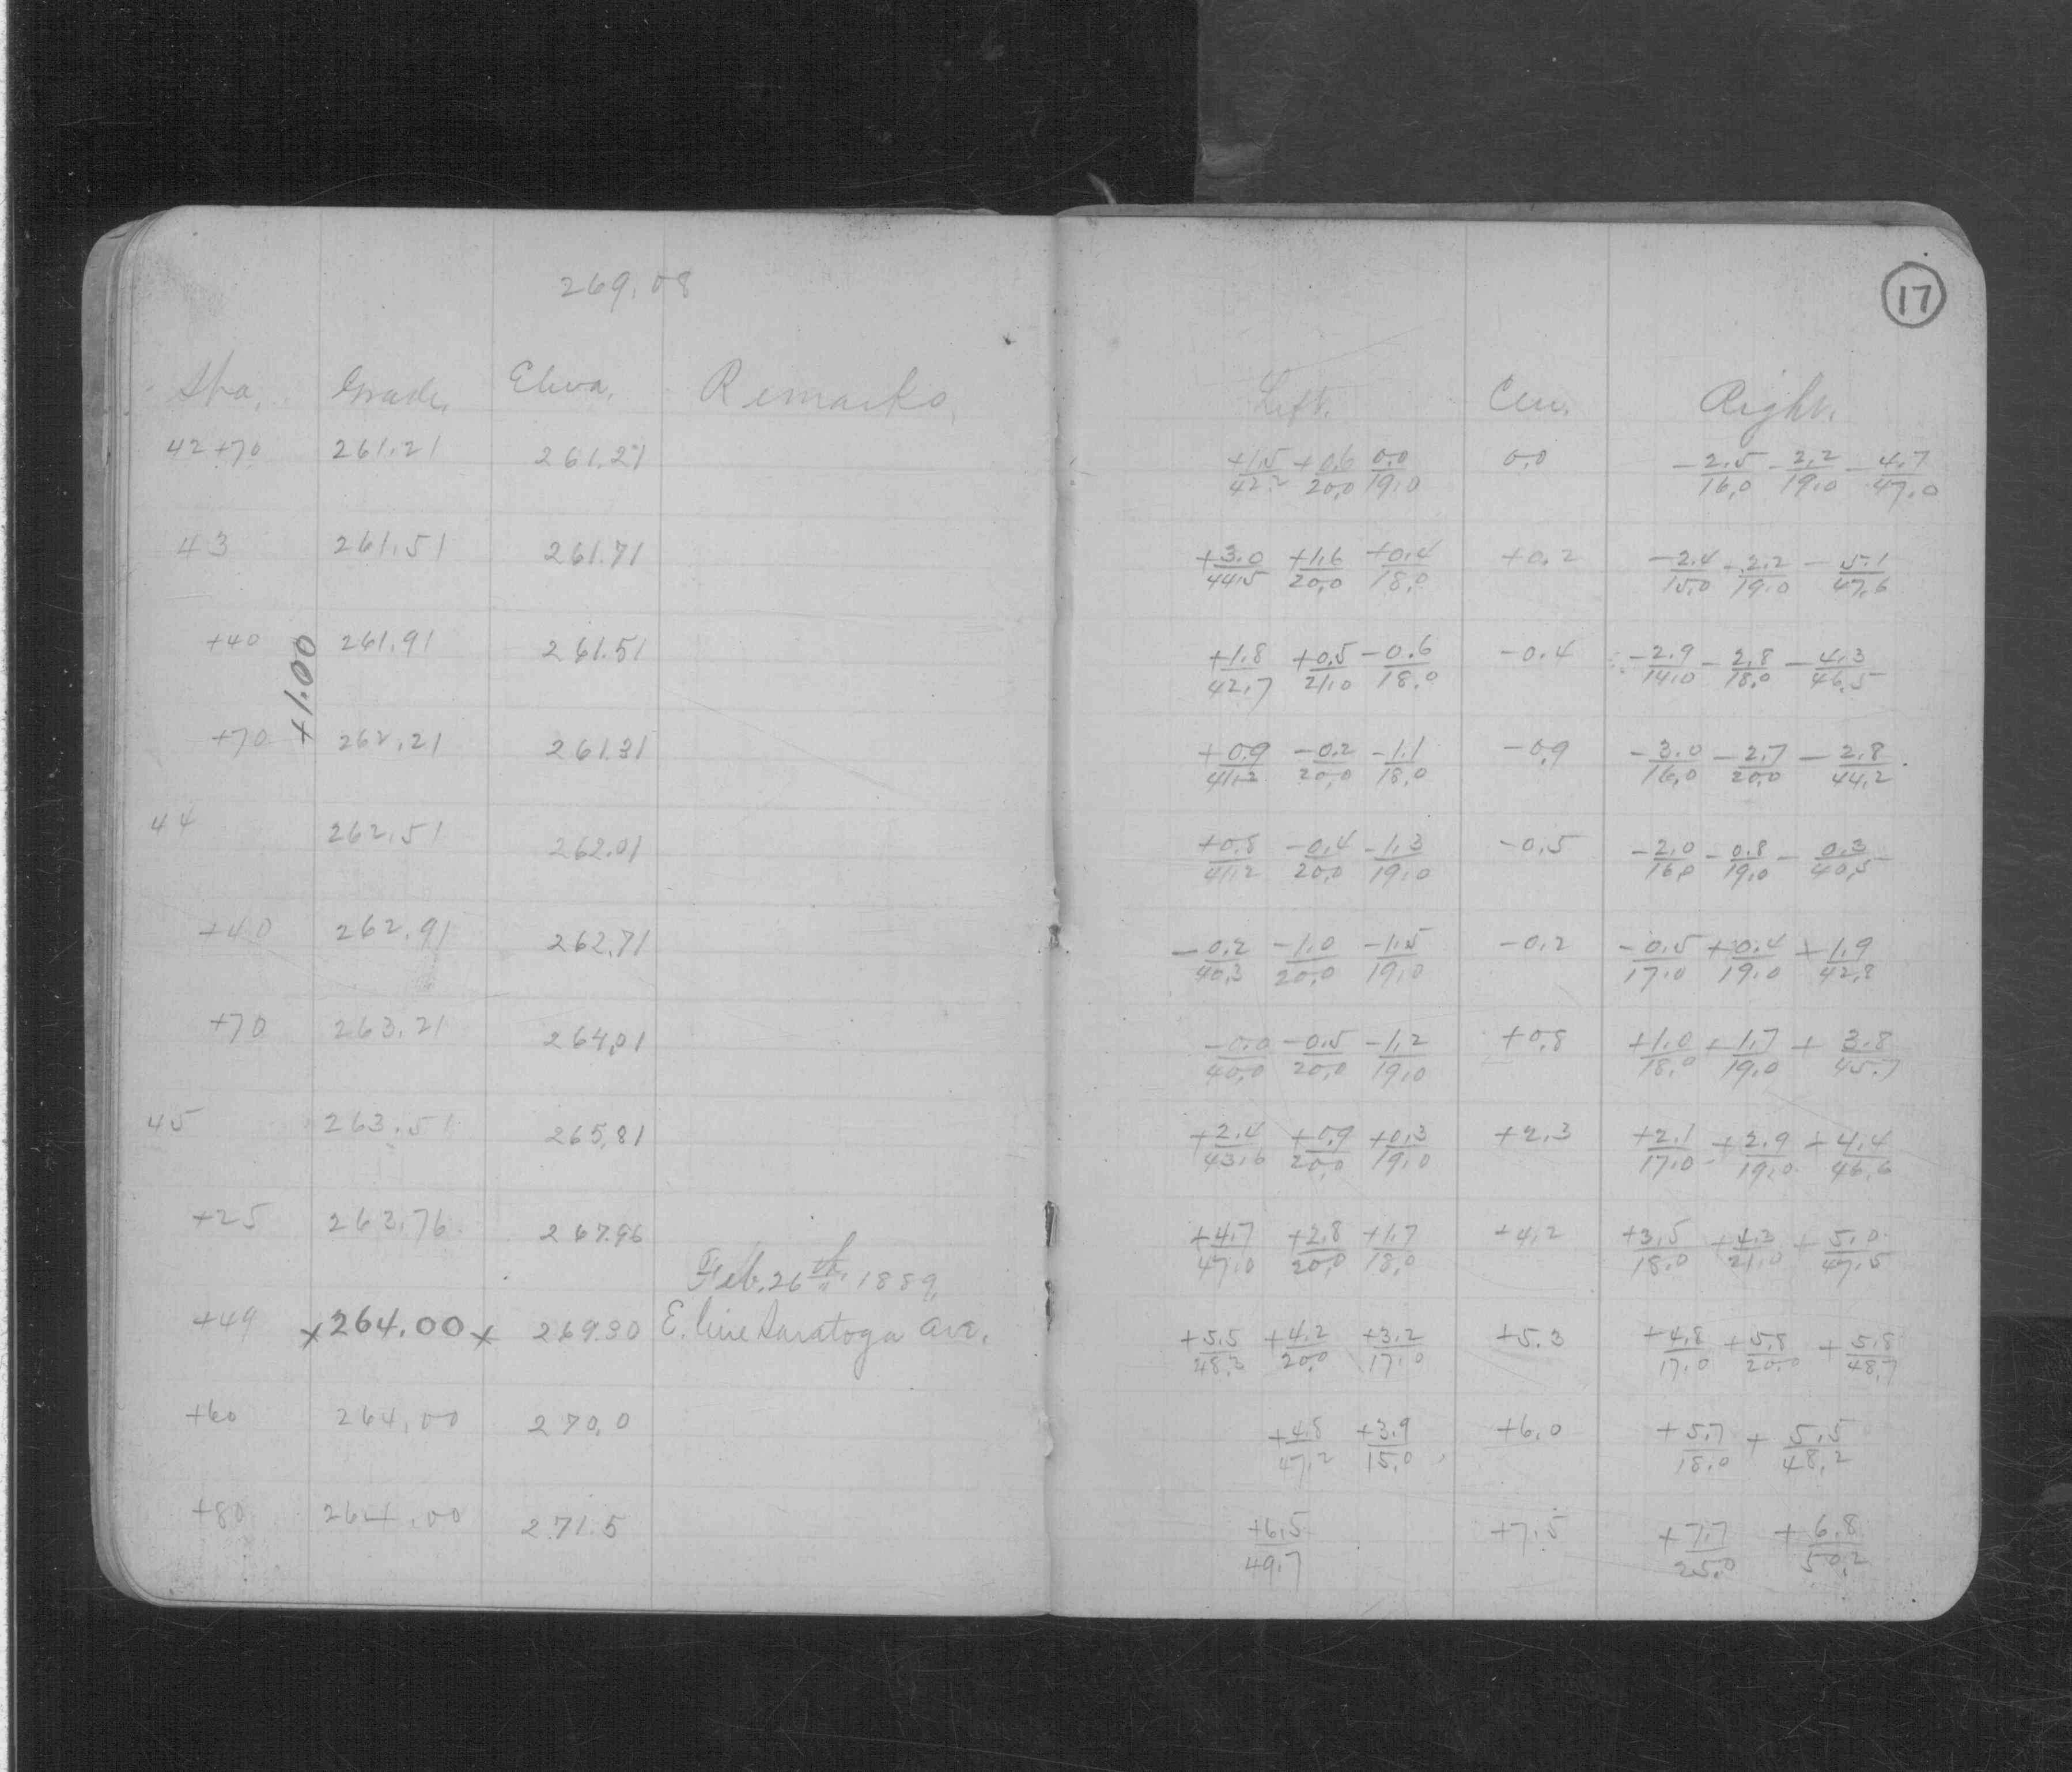 269.08
17
Sta. Grade. Eleva. Remarks. Left. Cen. Right.
42+70 261.21 261.21 +1.5/42.2 +0.6/20.0 0.0/19.0 0.0 -2.5/16.0 -2.2/19.0 -4.7/47.0
43 261.51 261.71 +3.0/44.5 +1.6/20.0 +0.4/18.0 +0.2 -2.4/15.0 -2.2/19.0 -5.1/47.6
+40 261.91 261.51 +1.8/42.7 +0.5/21.0 -0.6/18.0 -0.4 -2.9/14.0 -2.8/18.0 -4.3/46.5
+1.00
+70 262.21 261.31 +0.9/41.2 -0.2/20.0 -1.1/18.0 -0.9 -3.0/16.0 -2.7/20.0 -2.8/44.2
44 262.51 262.01 +0.8/41.2 -0.4/20.0 -1.3/19.0 -0.5 -2.0/16.0 -0.8/19.0 -0.3/40.5
+40 262.91 262.71 -0.2/40.3 -1.0/20.0 -1.5/19.0 -0.2 -0.5/17.0 +0.4/19.0 +1.9/42.8
+70 263.21 264.01 -0.0/40.0 -0.5/20.0 -1.2/19.0 +0.8 +1.0/18.0 +1.7/19.0 +3.8/45.7
45 263.51 265.81 +2.4/43.6 +0.9/20.0 +0.3/19.0 +2.3 +2.1/17.0 +2.9/19.0 +4.4/46.6
+25 263.76 267.96 +4.7/47.0 +2.8/20.0 +1.7/18.0 +4.2 +3.5/18.0 +4.3/21.0 +5.0/47.5
Feb. 26th, 1889.
+49 x264.00x 269.30 E. line Saratoga Ave. +5.5/48.3 +4.2/20.0 +3.2/17.0 +5.3 +4.8/17.0 +5.8/20.0 +5.8/48.7
+60 264.00 270.0 +4.8/47.2 +3.9/15.0 +6.0 +5.7/18.0 +5.5/48.2
+80 264.00 271.5 +6.5/49.7 +7.5 +7.7/25.0 +6.8/50.2